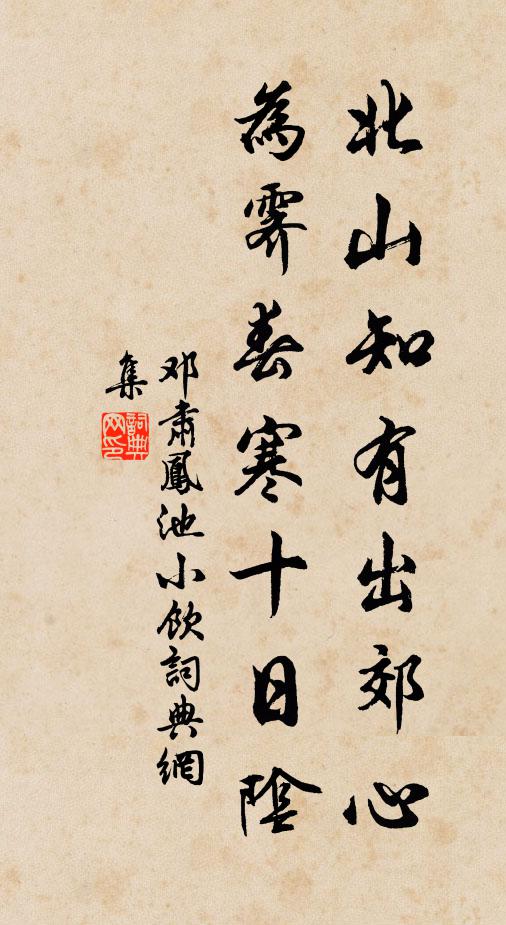 北山知有出郊心
為霽春寒十日陰
邓肅鳳池小飲詞典網
集
詞典
网印